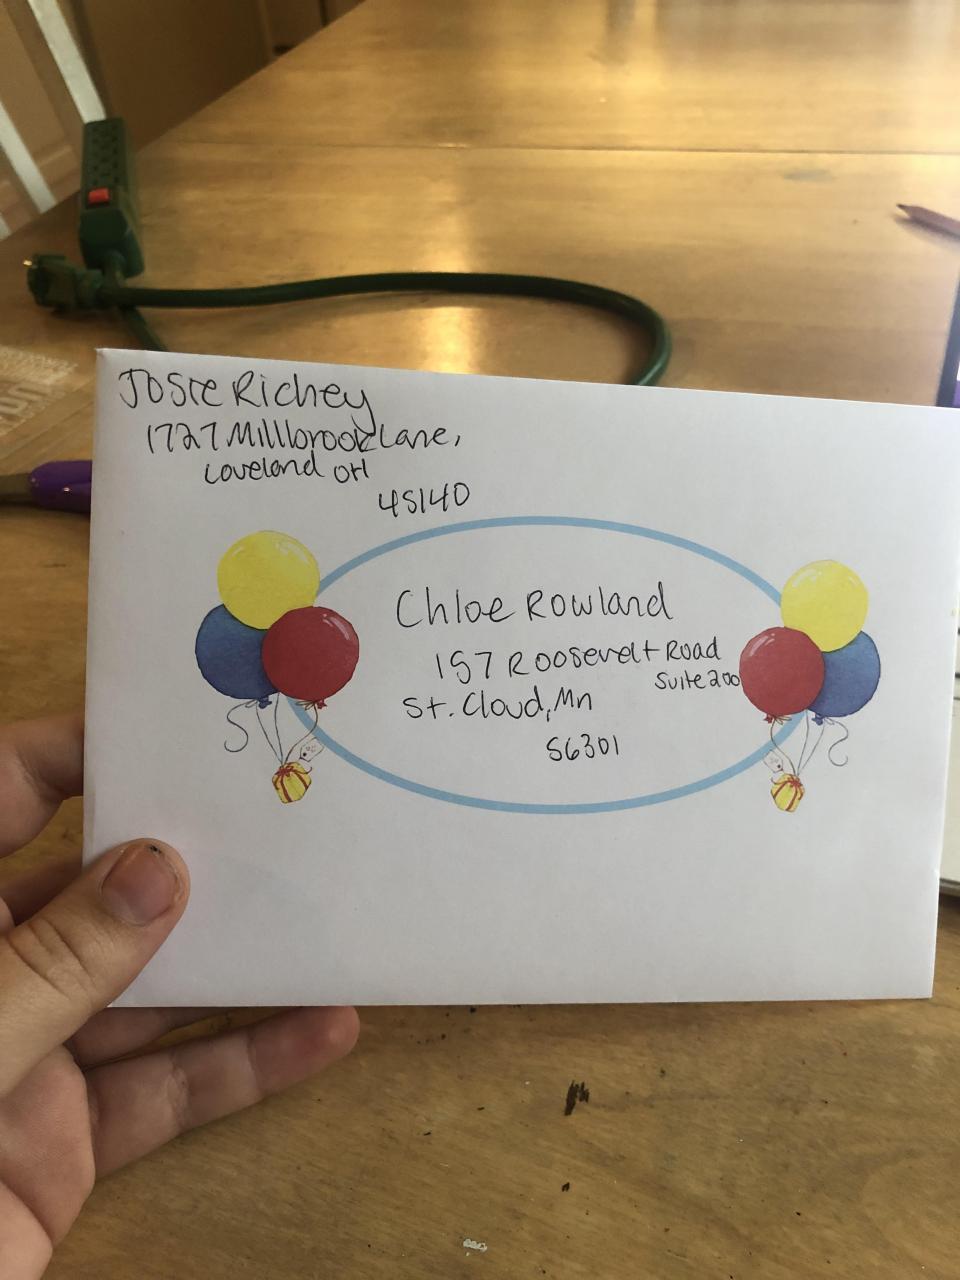 Josie Richey
1727 Millbrook Lane,
Loveland OH
45140
Chloe Rowland
157 Roosevelt Road
Suite 200
St. Cloud, Mn
56301